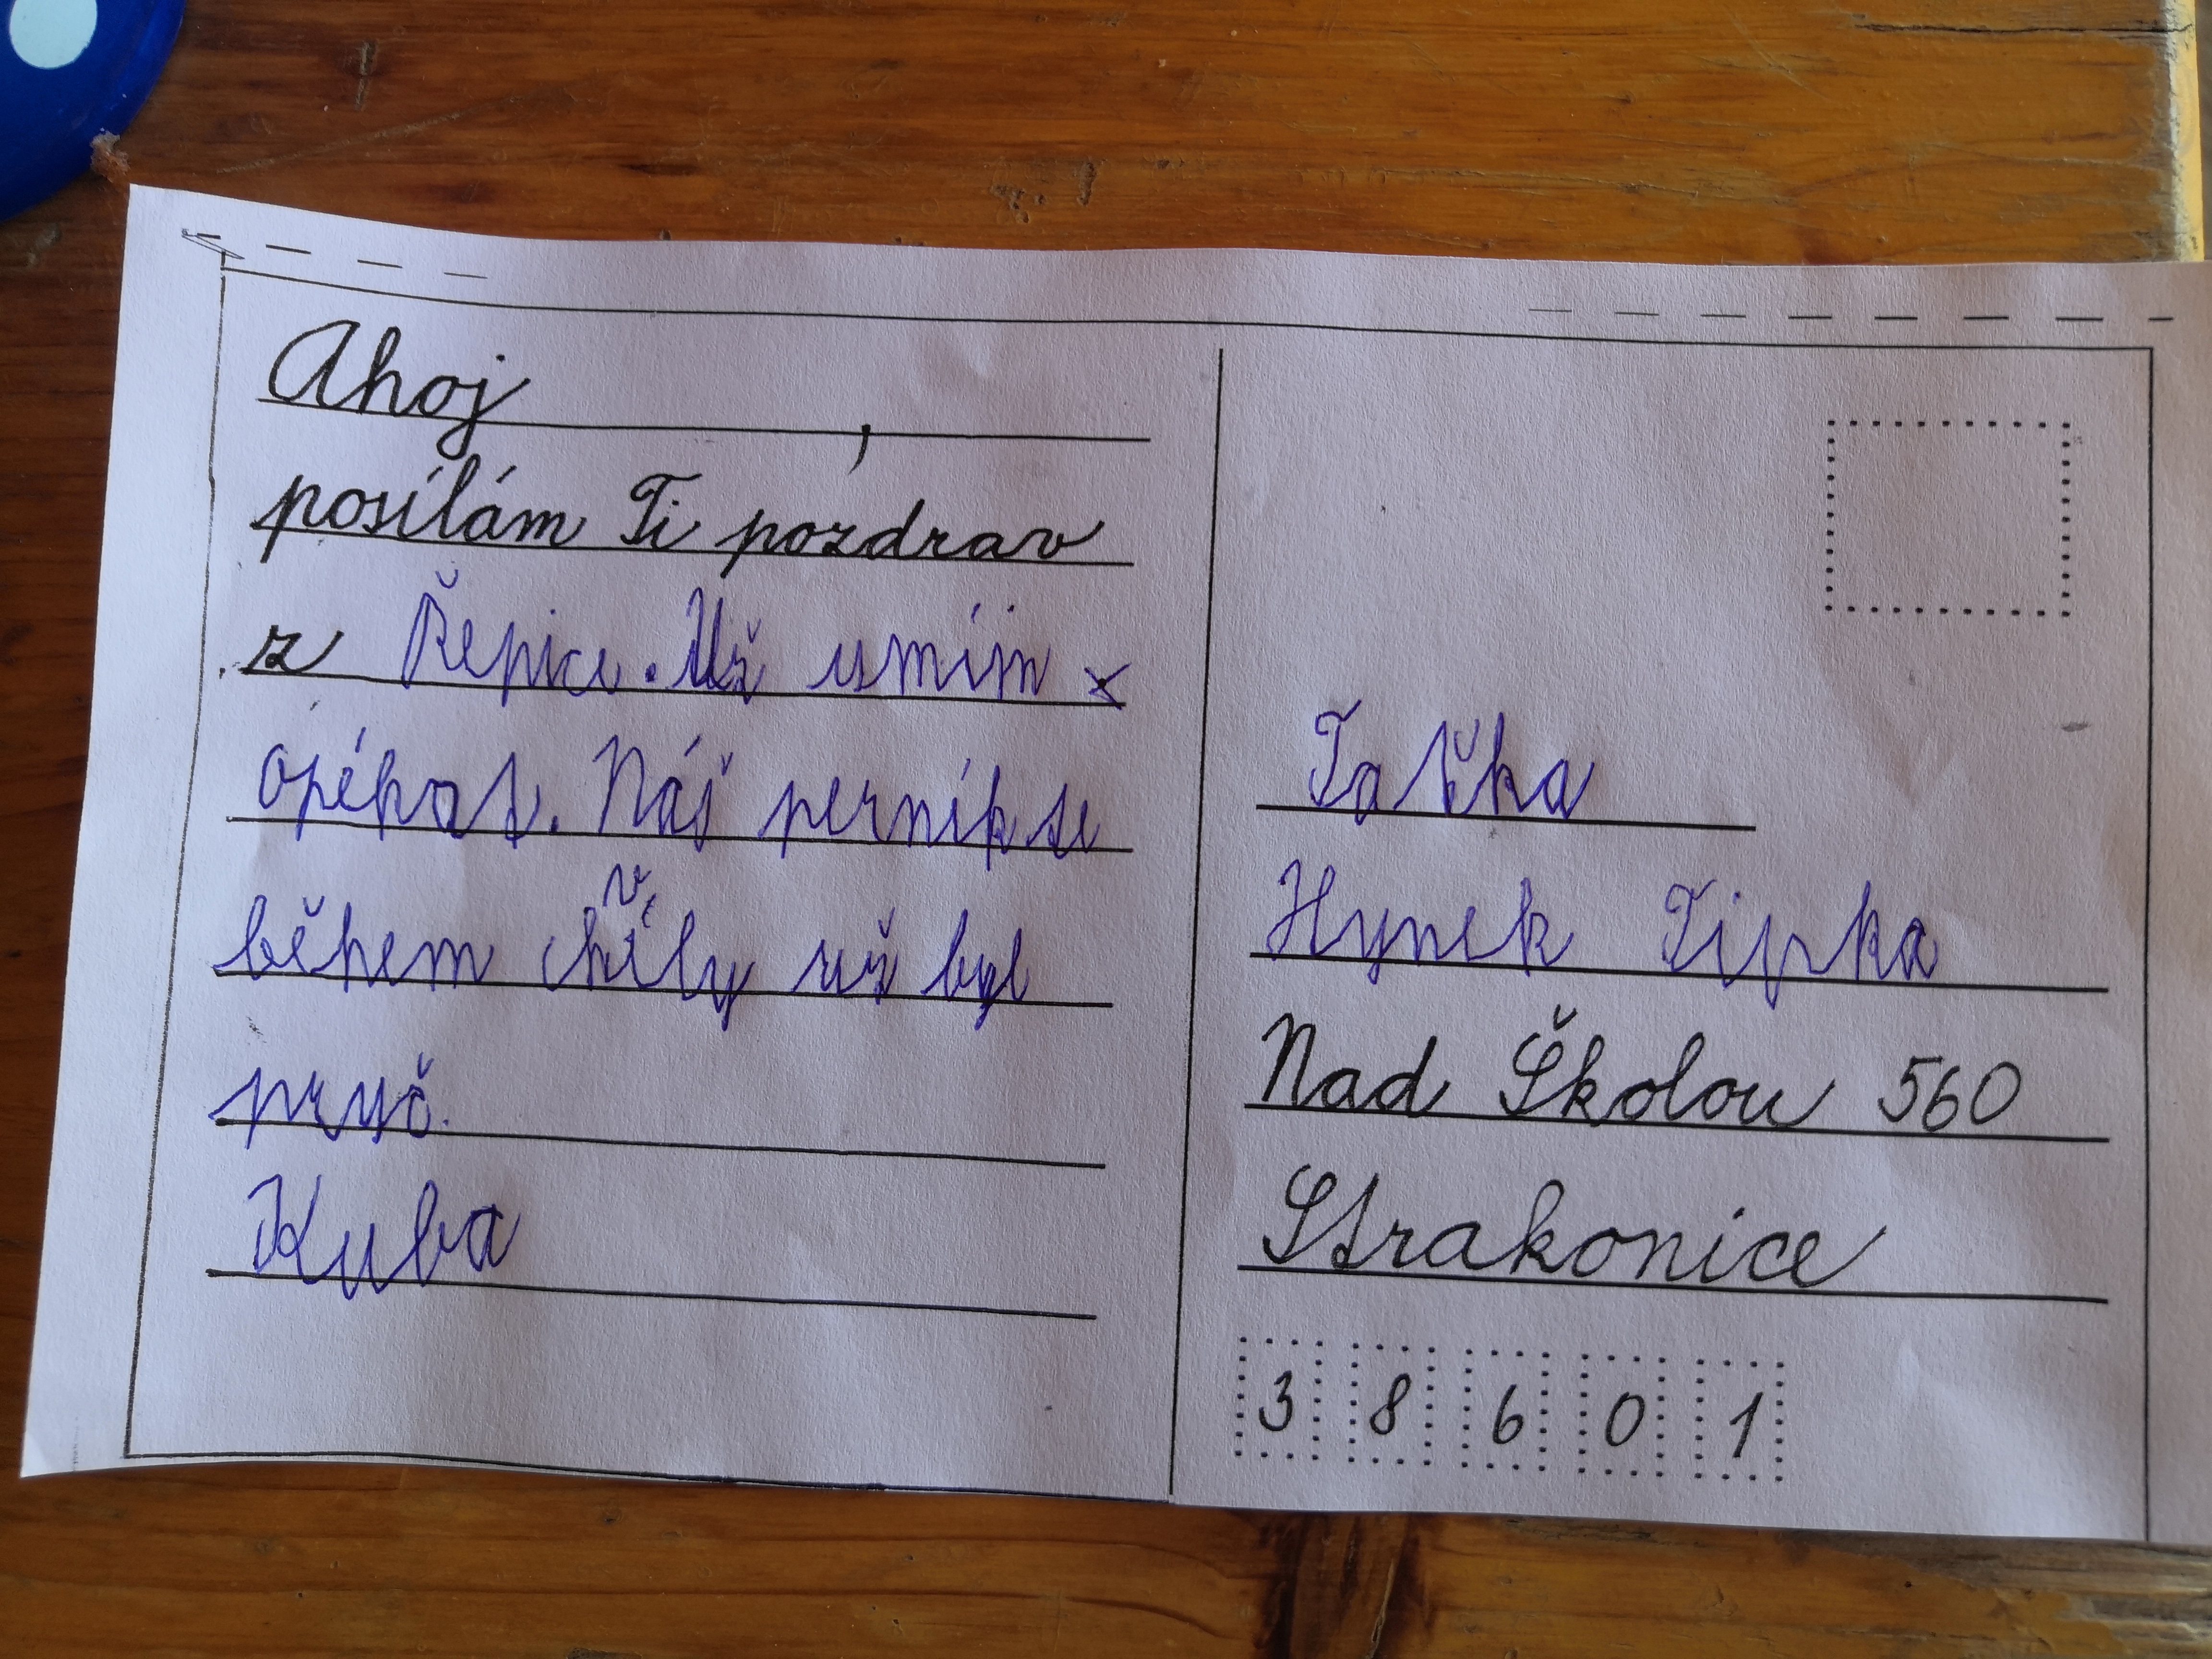 Ahoj ,
posílám Ti pozdrav
z Řepice. Už umím
opékat. Náš perník se
během chvíly už byl
pryč.
Kuba
Taťka
Hynek Tipka
Nad Školou 560
Strakonice
3 8 6 0 1